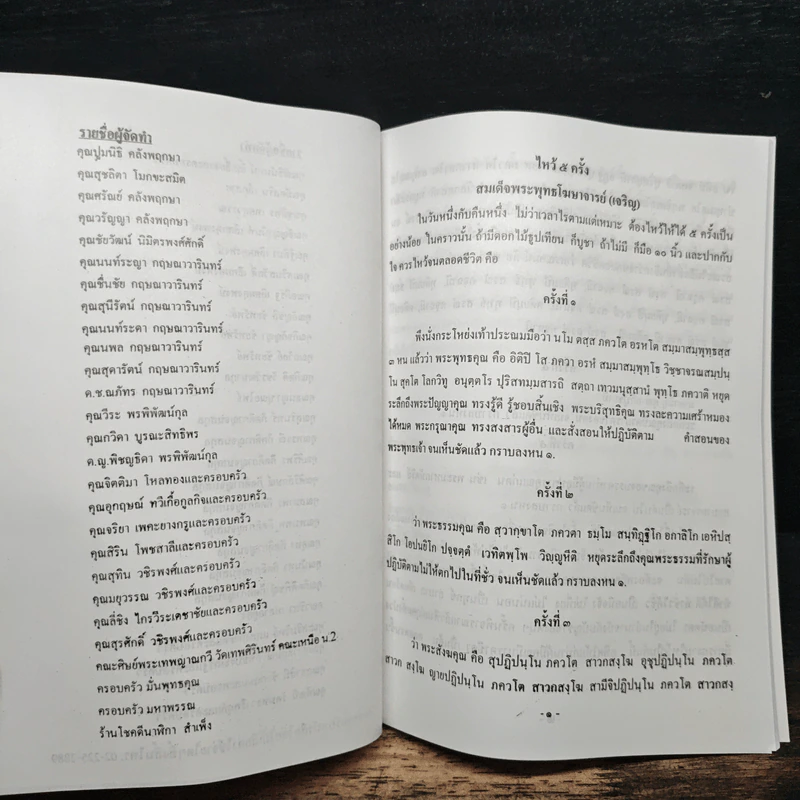 รายชื่อผู้จัดทำ
คุณปูมนิธิ คลังพฤกษา
คุณสุชลิตา โมกขะสมิต
คุณศรัณย์ คลังพฤกษา
คุณวรัญญา คลังพฤกษา
คุณชัยวัฒน์ นิมิตรพงศ์ศักดิ์
คุณนนท์ระญา กฤษณาวารินทร์
คุณชื่นชัย กฤษณาวารินทร์
คุณสุนีรัตน์ กฤษณาวารินทร์
คุณนนท์ระดา กฤษณาวารินทร์
คุณนพล กฤษณาวารินทร์
คุณสุดารัตน์ กฤษณาวารินทร์
ด.ช.ณภัทร กฤษณาวารินทร์
คุณวีระ พรพิพัฒน์กุล
คุณกวิตา บูรณะสิทธิพร
ด.ญ.พิชญธิดา พรพิพัฒน์กุล
คุณจิตติมา โหลทองและครอบครัว
คุณอุกฤษณ์ ทวีเกื้อกูลกิจและครอบครัว
คุณจริยา เพคะยางกรูและครอบครัว
คุณสิริน โพชสาลีและครอบครัว
คุณสุทิน วชิรพงศ์และครอบครัว
คุณมยุวรรณ วชิรพงศ์และครอบครัว
คุณลี่ชิง ไกรวีระเดชาชัยและครอบครัว
คุณสุรศักดิ์ วชิรพงศ์และครอบครัว
คณะศิษย์พระเทพญาณกวี วัดเทพศิรินทร์ คณะเหนือ น.2
ครอบครัว มั่นพุทธคุณ
ครอบครัว มหาพรรณ
ร้านโชคดีนาฬิกา สำเพ็ง
ไหว้ ๕ ครั้ง
สมเด็จพระพุทธโฆษาจารย์ (เจริญ)
ในวันหนึ่งกับคืนหนึ่ง ไม่ว่าเวลาไรตามแต่เหมาะ ต้องไหว้ให้ได้ ๕ ครั้งเป็น
อย่างน้อย ในคราวนั้น ถ้ามีดอกไม้ธูปเทียน ก็บูชา ถ้าไม่มี ก็มือ ๑๐ นิ้ว และปากกับ
ใจ ควรไหว้จนตลอดชีวิต คือ
ครั้งที่ ๑
พึงนั่งกระโหย่งเท้าประณมมือว่า นโม ตสฺส ภควโต อรหโต สมฺมาสมฺพุทฺธสฺส
๓ หน แล้วว่า พระพุทธคุณ คือ อิติปิ โส ภควา อรหํ สมฺมาสมฺพุทฺโธ วิชฺชาจรณสมฺปน
โน สุคโต โลกวิทู อนุตฺตโร ปุริสทมฺมสารถิ สตฺถา เทวมนุสฺสานํ พุทฺโธ ภควาติ หยุด
ระลึกถึงพระปัญญาคุณ ทรงรู้ดี รู้ชอบสิ้นเชิง พระบริสุทธิคุณ ทรงละความเศร้าหมอง
ได้หมด พระกรุณาคุณ ทรงสงสารผู้อื่น และสั่งสอนให้ปฏิบัติตาม คำสอนของ
พระพุทธเจ้า จนเห็นชัดแล้ว กราบลงหน ๑.
ครั้งที่ ๒
ว่า พระธรรมคุณ คือ สฺวากฺขาโต ภควตา ธมฺโม สนฺทิฏฺฐิโก อกาลิโก เอหิปสฺ
สิโก โอปนยิโก ปจฺจตฺตํ เวทิตพฺโพ วิญฺญูหีติ หยุดระลึกถึงคุณพระธรรมที่รักษาผู้
ปฏิบัติตามไม่ให้ตกไปในที่ชั่ว จนเห็นชัดแล้ว กราบลงหน ๑.
ครั้งที่ ๓
ว่า พระสังฆคุณ คือ สุปฏิปนฺโน ภควโต สาวกสงฺโฆ อุชุปฏิปนฺโน ภควโต
สาวก สงฺโฆ ญายปฏิปนฺโน ภควโต สาวกสงฺโฆ สามีจิปฏิปนฺโน ภควโต สาวกสงฺ
-๑-